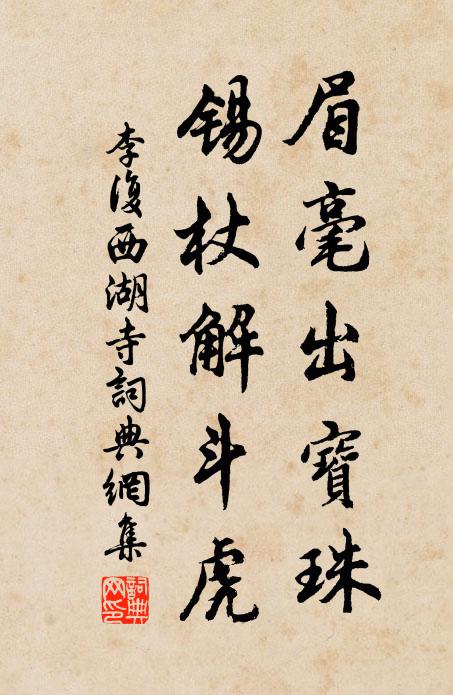 眉毫出寶珠
錫杖解斗虎
李復西湖寺詞典網集
詞典